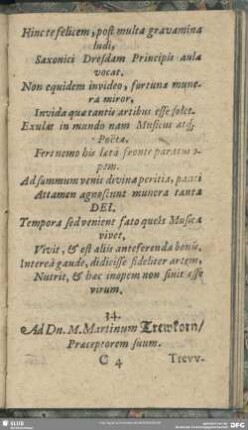 Hinc te felicem, post multa gravamina
ludi,
Saxonici Dresdam Principis aula
vocat.
Non equidem invideo, fortuna mune-
ra miror,
Invida quæ tantis artibus esse solet.
Exulat in mundo nam Musicus atq́;
Poëta,
Fert nemo his lætâ fronte paratus
opem.
Ad summum venit divina peritia, pauci
Attamen agnoscunt munera tanta
DEI.
Tempora sed venient fato queis Musica
vivet,
Vivit, & est aliis anteferenda bonis.
Intereà gaude, didicisse fideliter artem,
Nutrit, & hæc inopem non sinit esse
virum.
14.
Ad Dn. M. Martinum Trewkorn/
Præceptorem suum.
C 4
Trevv-
SLUB
DFG